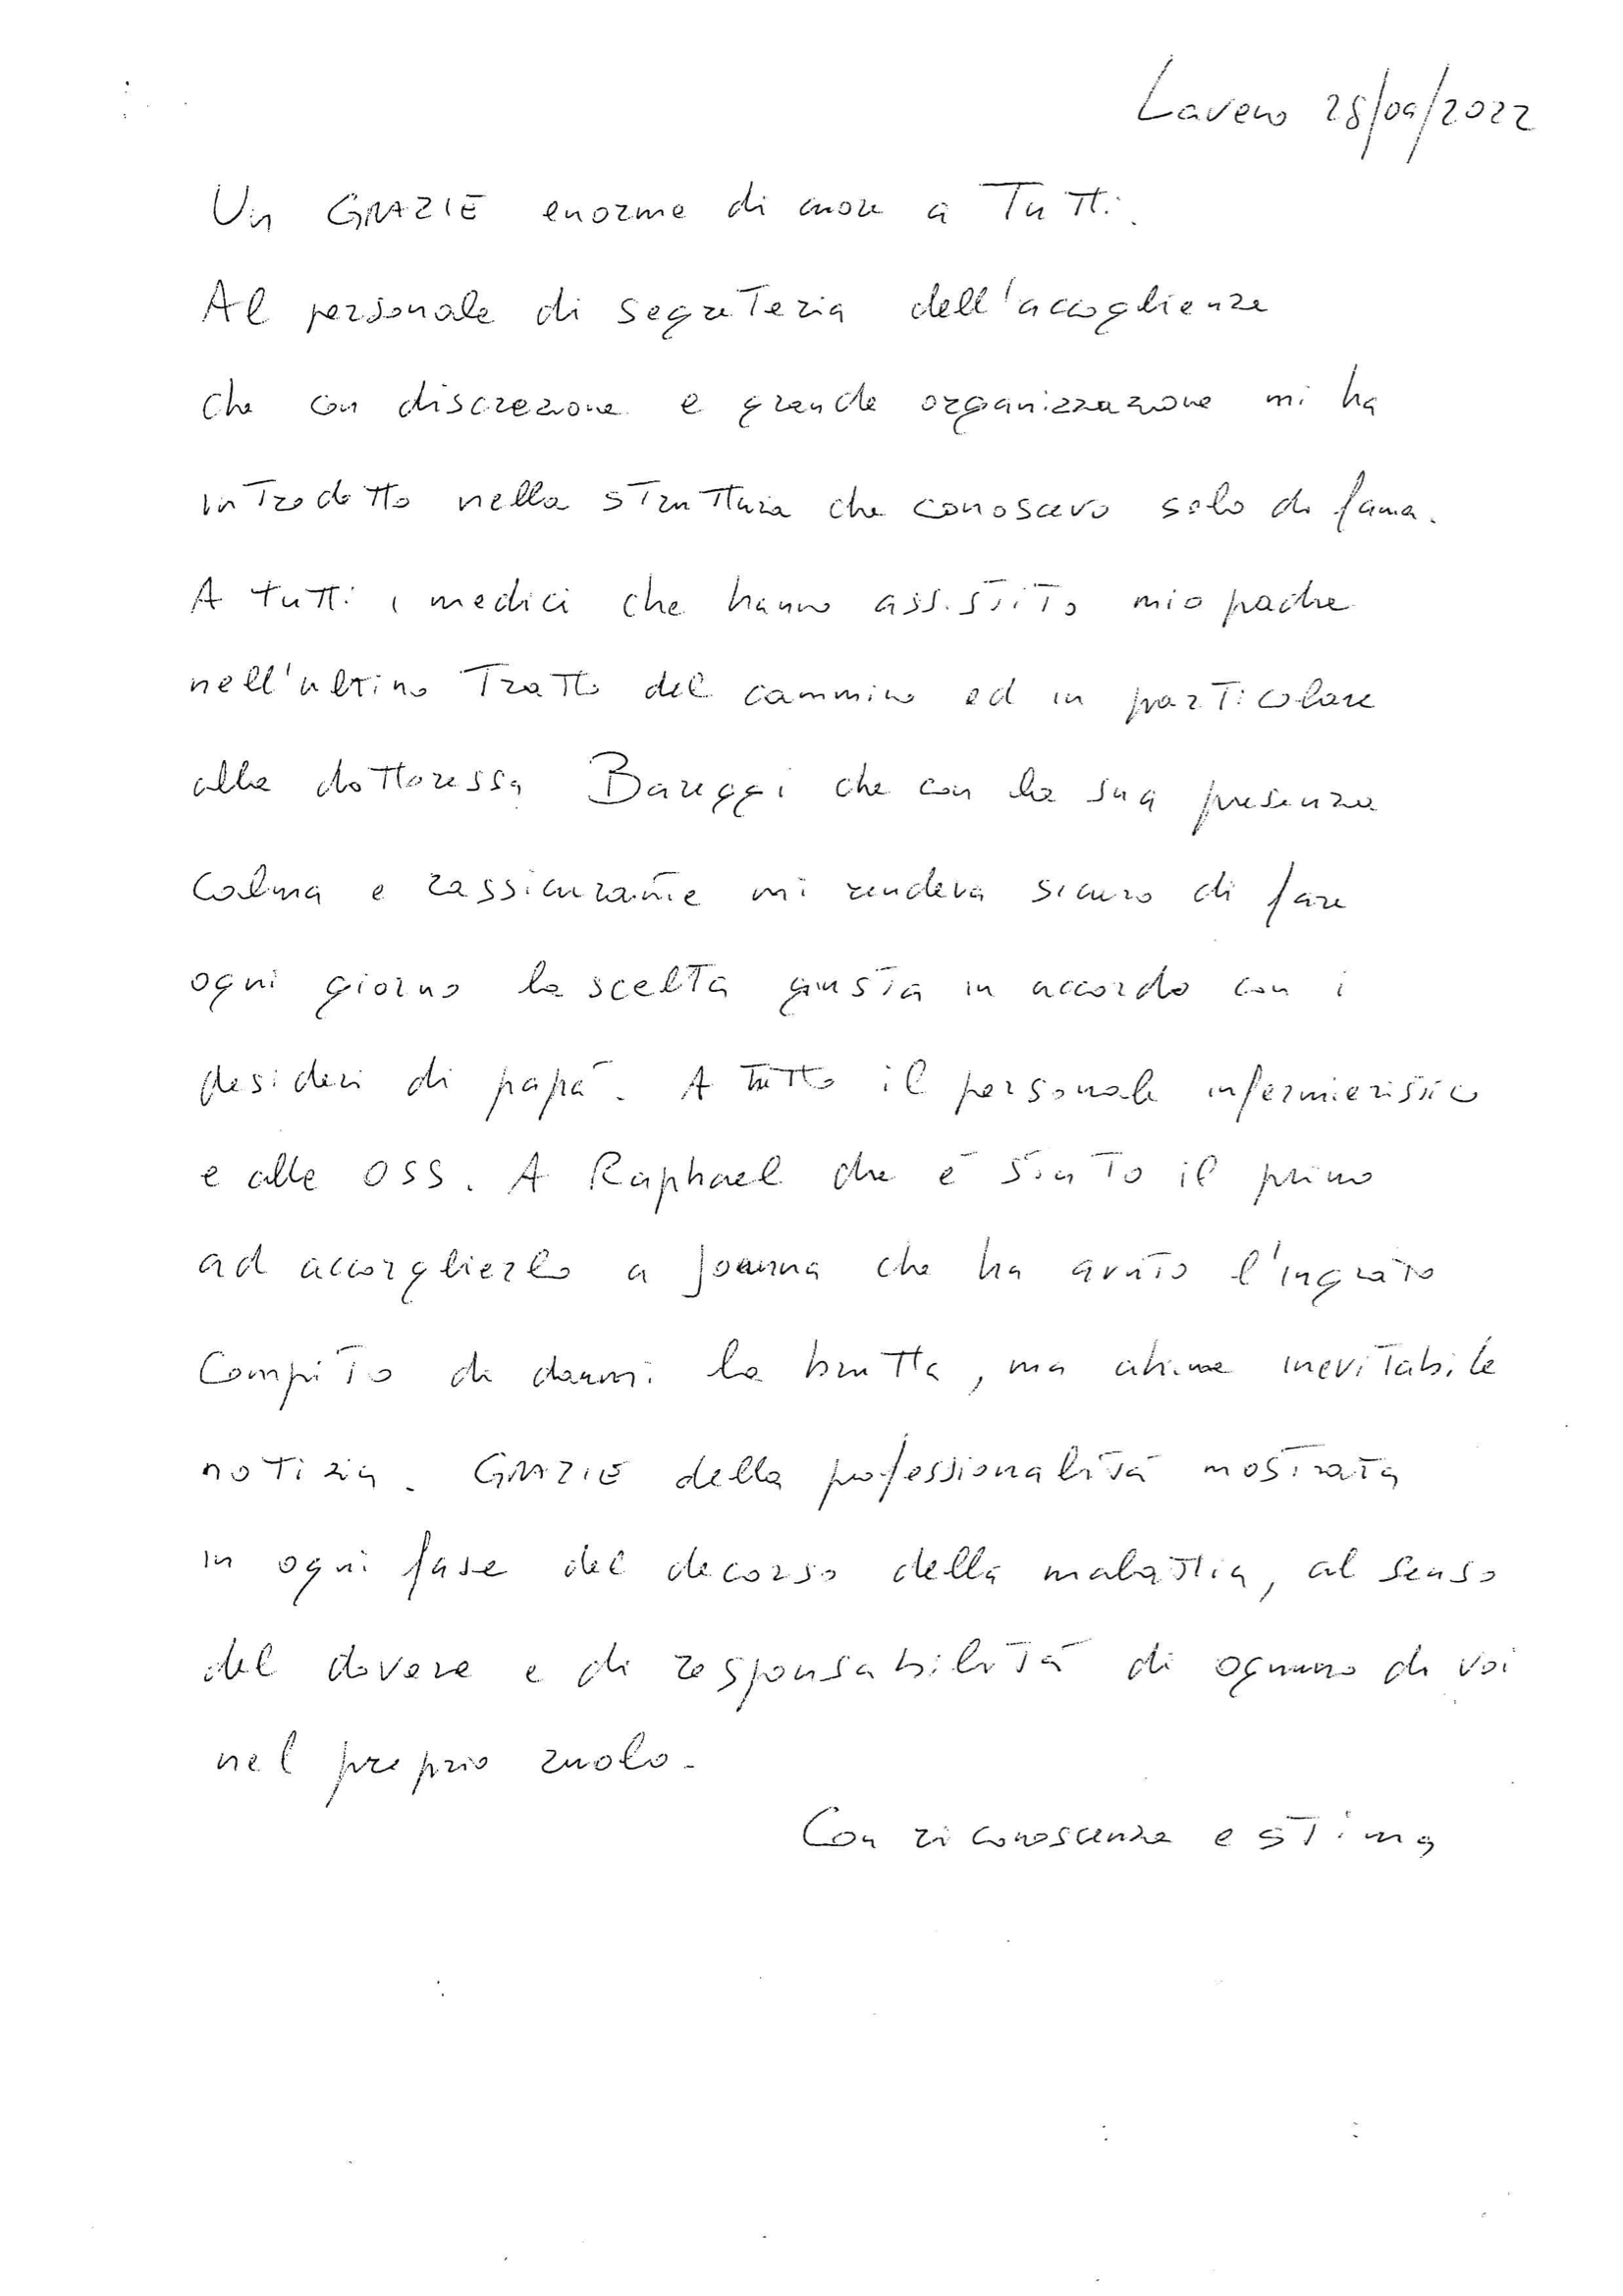 Laveno 28/09/2022
Un GRAZIE enorme di cuore a Tutti.
Al personale di segreteria dell'accoglienza
che con discrezione e grande organizzazione mi ha
introdotto nella struttura che conoscevo solo di fama.
A tutti i medici che hanno assistito mio padre
nell'ultimo tratto del cammino ed in particolare
alla dottoressa Bareggi che con la sua presenza
calma e rassicurante mi rendeva sicuro di fare
ogni giorno la scelta giusta in accordo con i
desideri di papà. A tutto il personale infermieristico
e alle OSS. A Raphael che è stato il primo
ad accorglierlo a Joanna che ha avuto l'ingrato
compito di darmi la brutta, ma ahimè inevitabile
notizia. GRAZIE della professionalità mostrata
in ogni fase del decorso della malattia, al senso
del dovere e di responsabilità di ognuno di voi
nel proprio ruolo.
Con riconoscenza e stima